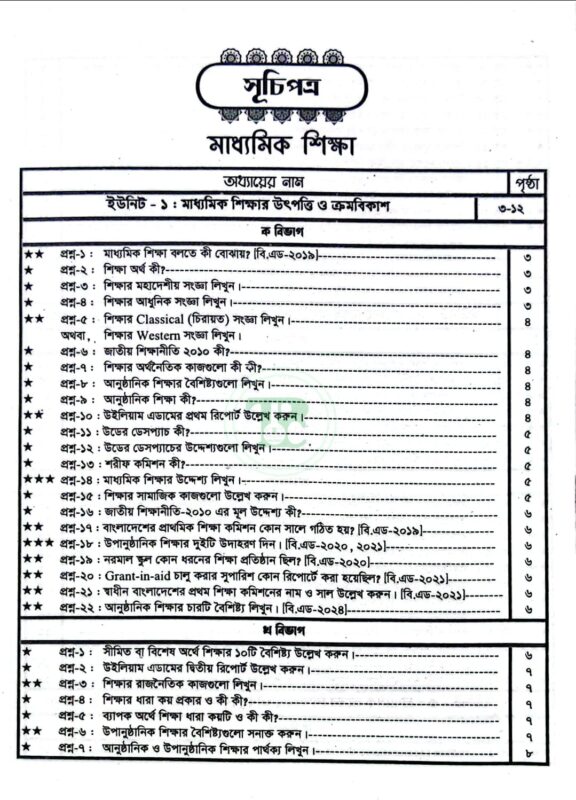 সূচিপত্র
মাধ্যমিক শিক্ষা
অধ্যায়ের নাম পৃষ্ঠা
ইউনিট - ১ : মাধ্যমিক শিক্ষার উৎপত্তি ও ক্রমবিকাশ ৩-১২
ক বিভাগ
★★ প্রশ্ন-১ : মাধ্যমিক শিক্ষা বলতে কী বোঝায়? [বি.এড-২০১৯] ৩
★ প্রশ্ন-২ : শিক্ষা অর্থ কী? ৩
★ প্রশ্ন-৩ : শিক্ষার মহাদেশীয় সংজ্ঞা লিখুন। ৩
★ প্রশ্ন-৪ : শিক্ষার আধুনিক সংজ্ঞা লিখুন। ৩
★★ প্রশ্ন-৫ : শিক্ষার Classical (চিরায়ত) সংজ্ঞা লিখুন। ৪
অথবা, শিক্ষার Western সংজ্ঞা লিখুন।
★ প্রশ্ন-৬ : জাতীয় শিক্ষানীতি ২০১০ কী? ৪
★ প্রশ্ন-৭ : শিক্ষার অর্থনৈতিক কাজগুলো কী কী? ৪
★ প্রশ্ন-৮ : আনুষ্ঠানিক শিক্ষার বৈশিষ্ট্যগুলো লিখুন। ৪
★ প্রশ্ন-৯ : আনুষ্ঠানিক শিক্ষা কী? ৪
★★ প্রশ্ন-১০ : উইলিয়াম এডামের প্রথম রিপোর্ট উল্লেখ করুন। ৪
★ প্রশ্ন-১১ : উডের ডেসপ্যাচ কী? ৫
★ প্রশ্ন-১২ : উডের ডেসপ্যাচের উদ্দেশ্যগুলো লিখুন। ৫
★ প্রশ্ন-১৩ : শরীফ কমিশন কী? ৫
★★★ প্রশ্ন-১৪ : মাধ্যমিক শিক্ষার উদ্দেশ্য লিখুন। ৫
★ প্রশ্ন-১৫ : শিক্ষার সামাজিক কাজগুলো উল্লেখ করুন। ৫
★ প্রশ্ন-১৬ : জাতীয় শিক্ষানীতি-২০১০ এর মূল উদ্দেশ্য কী? ৬
★★ প্রশ্ন-১৭ : বাংলাদেশের প্রাথমিক শিক্ষা কমিশন কোন সালে গঠিত হয়? [বি.এড-২০১৯] ৬
★★★ প্রশ্ন-১৮ : উপানুষ্ঠানিক শিক্ষার দুইটি উদাহরণ দিন। [বি.এড-২০২০, ২০২১] ৬
★★ প্রশ্ন-১৯ : নরমাল স্কুল কোন ধরনের শিক্ষা প্রতিষ্ঠান ছিল? [বি.এড-২০২০] ৬
★★ প্রশ্ন-২০ : Grant-in-aid চালু করার সুপারিশ কোন রিপোর্টে করা হয়েছিল? [বি.এড-২০২১] ৬
★★ প্রশ্ন-২১ : স্বাধীন বাংলাদেশের প্রথম শিক্ষা কমিশনের নাম ও সাল উল্লেখ করুন। [বি.এড-২০২১] ৬
★★ প্রশ্ন-২২ : আনুষ্ঠানিক শিক্ষার চারটি বৈশিষ্ট্য লিখুন। [বি.এড-২০২৪] ৬
খ বিভাগ
★ প্রশ্ন-১ : সীমিত বা বিশেষ অর্থে শিক্ষার ১০টি বৈশিষ্ট্য উল্লেখ করুন। ৬
★ প্রশ্ন-২ : উইলিয়াম এডামের দ্বিতীয় রিপোর্ট উল্লেখ করুন। ৭
★★ প্রশ্ন-৩ : শিক্ষার রাজনৈতিক কাজগুলো লিখুন। ৭
★ প্রশ্ন-৪ : শিক্ষার ধারা কয় প্রকার ও কী কী? ৭
★ প্রশ্ন-৫ : ব্যাপক অর্থে শিক্ষা ধারা কয়টি ও কী কী? ৭
★★ প্রশ্ন-৬ : উপানুষ্ঠানিক শিক্ষার বৈশিষ্ট্যগুলো সনাক্ত করুন। ৭
★ প্রশ্ন-৭ : আনুষ্ঠানিক ও উপানুষ্ঠানিক শিক্ষার পার্থক্য লিখুন। ৮